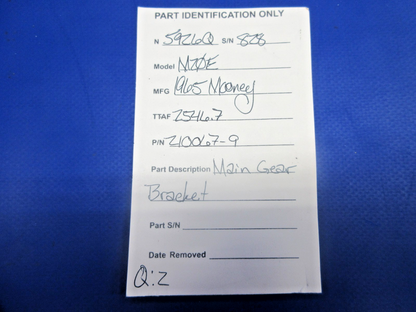 PART IDENTIFICATION ONLY
N 5926Q S/N 828
Model M20E
MFG 1965 Mooney
TTAF 2546.7
P/N 210067-9
Part Description Main Gear
Bracket
Part S/N
Date Removed
Q:2